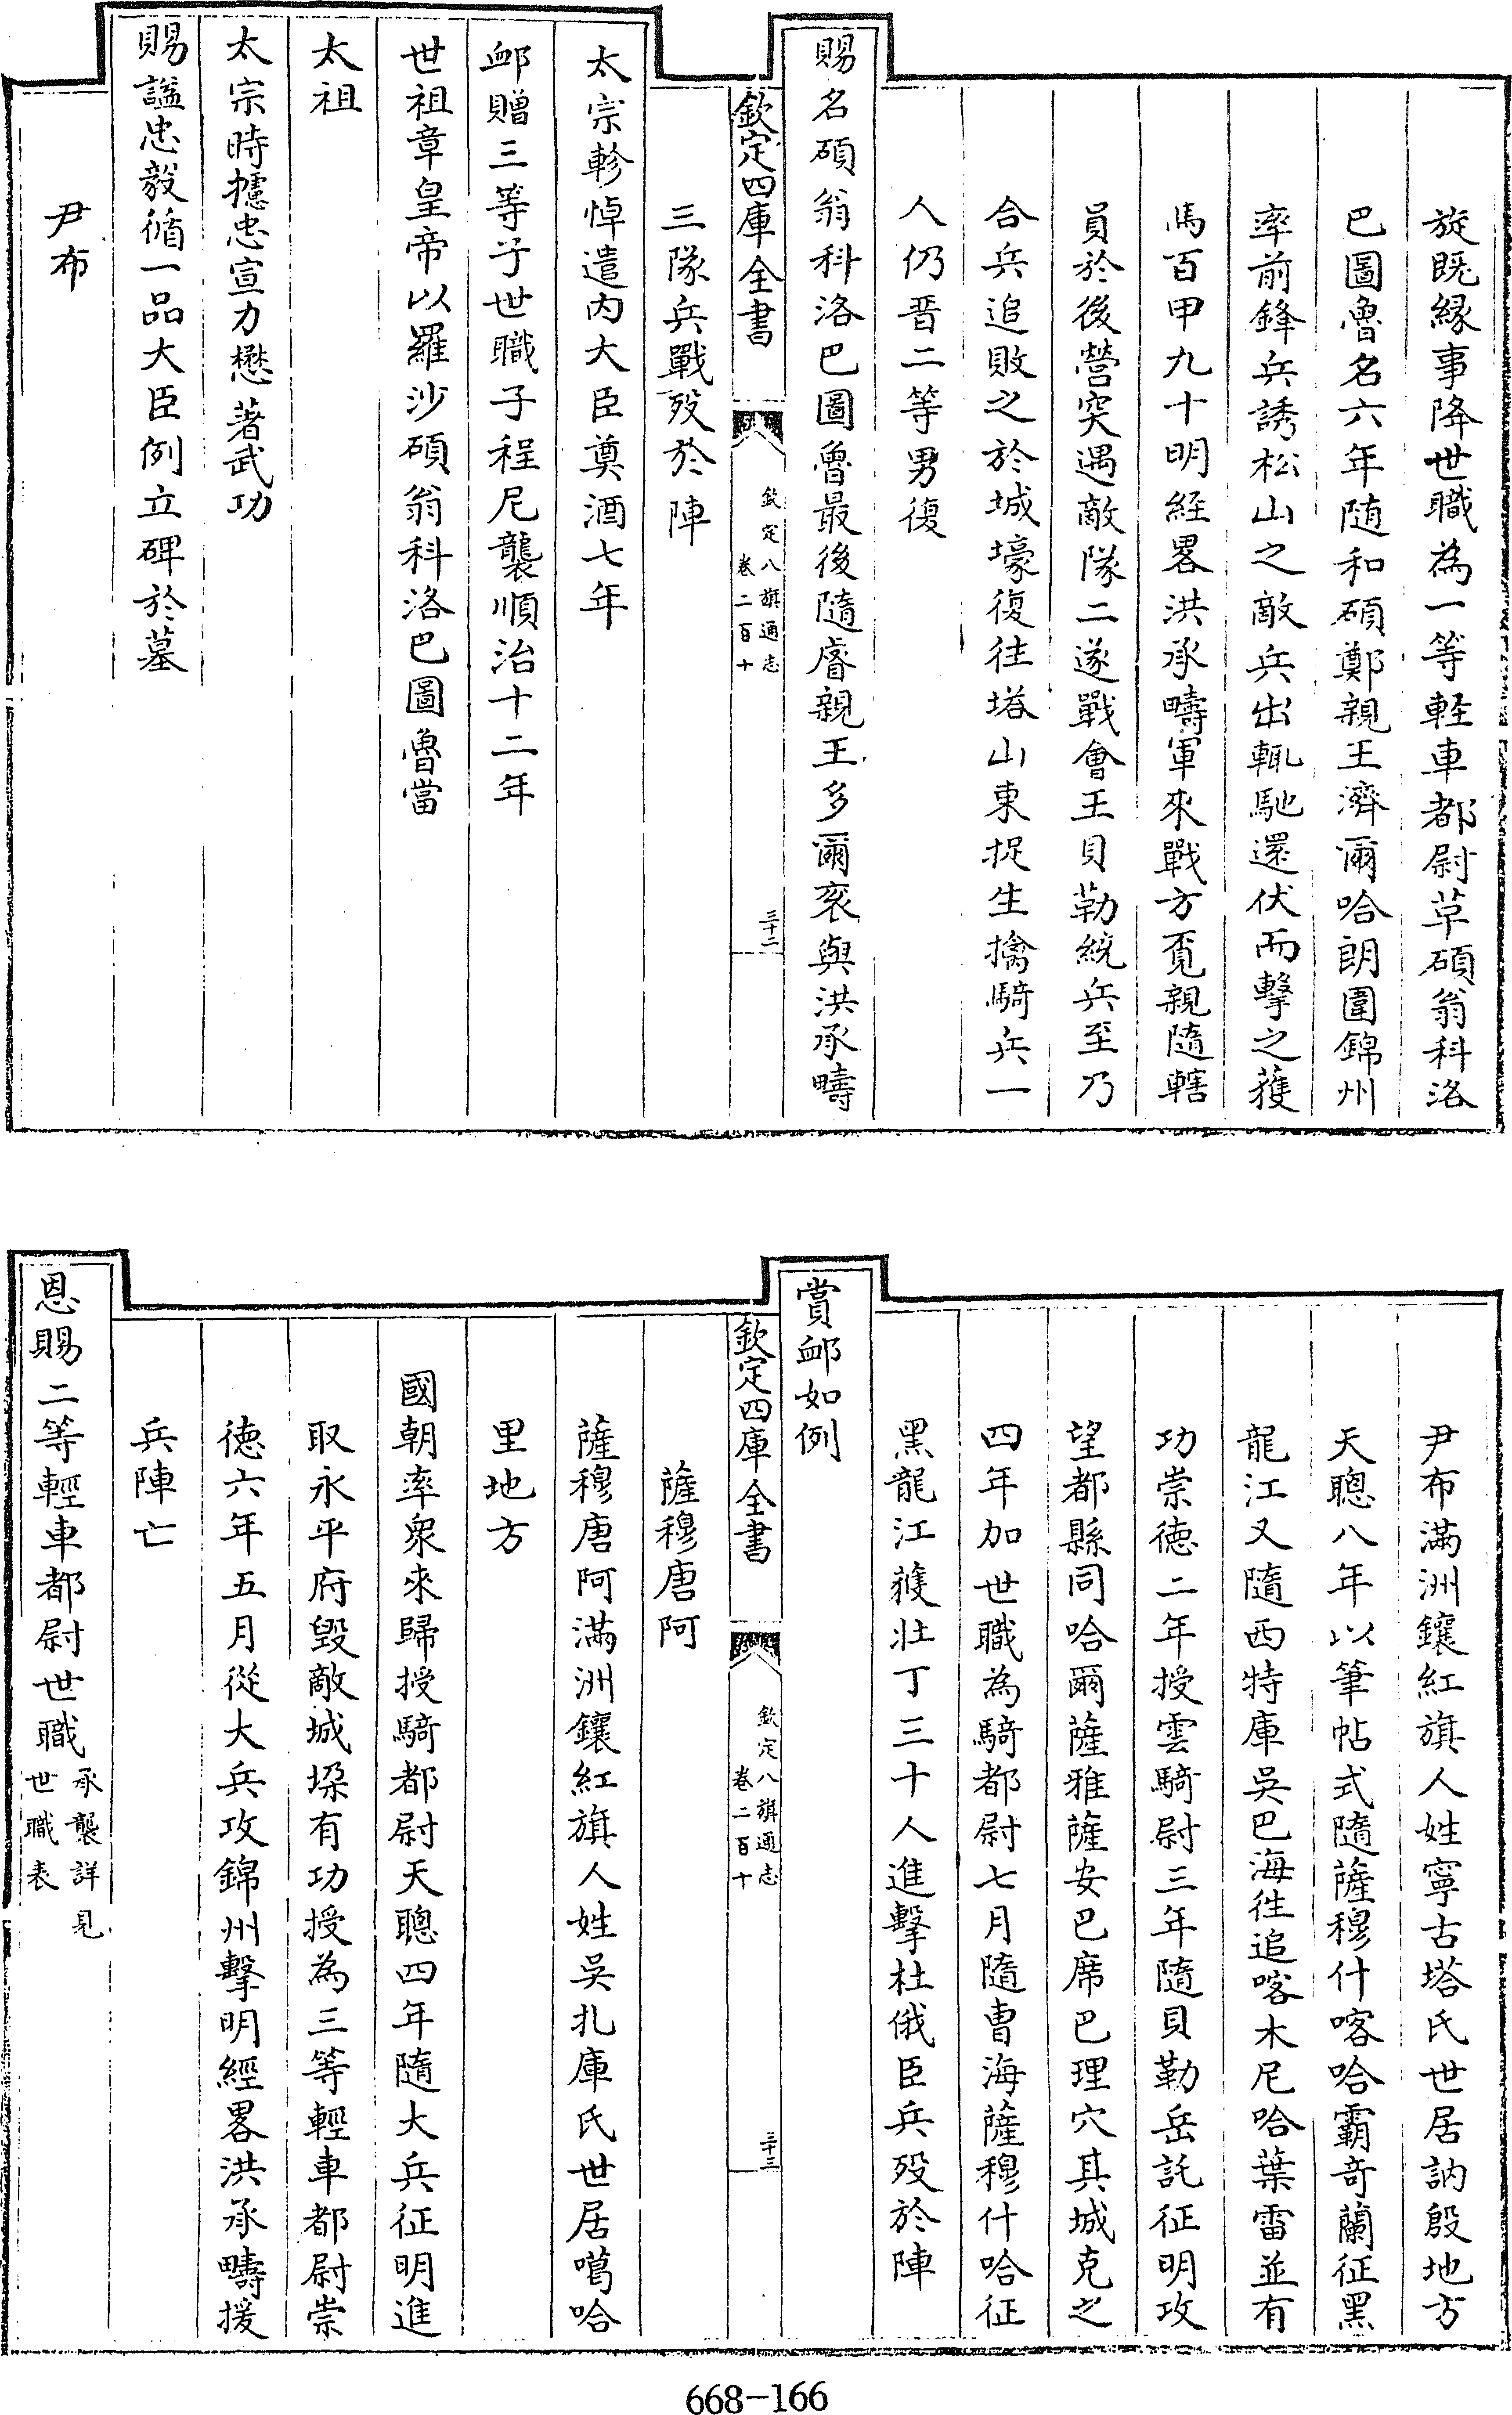 旋既緣事降世職為一等輕車都尉草碩翁科洛
巴圖魯名六年随和碩鄭親王濟爾哈朗圍錦州
率前鋒兵誘松山之敵兵出輒馳還伏而擊之獲
馬百甲九十明経畧洪承疇軍來戰方覔親隨轄
員於後營突遇敵隊二遂戰會王貝勒統兵至乃
合兵追敗之於城壕復往塔山東捉生擒騎兵一
人仍晋二等男復
賜名碩翁科洛巴圖魯最後隨睿親王多爾衮與洪承疇
欽定四庫全書
欽定八旗通志
卷二百十
三十二
三隊兵戰歿於陣
太宗軫悼遣内大臣奠酒七年
卹贈三等子世職子程尼襲順治十二年
世祖章皇帝以羅沙碩翁科洛巴圖魯當
太祖
太宗時攄忠宣力懋著武功
賜諡忠毅循一品大臣例立碑於墓
尹布
尹布滿洲鑲紅旗人姓寧古塔氏世居訥殷地方
天聰八年以筆帖式隨薩穆什喀哈霸奇蘭征黑
龍江又隨西特庫吳巴海徃追喀木尼哈葉雷並有
功崇徳二年授雲騎尉三年隨貝勒岳託征明攻
望都縣同哈爾薩雅薩安巴席巴理穴其城克之
四年加世職為騎都尉七月隨曹海薩穆什哈征
黑龍江獲壯丁三十人進擊杜俄臣兵歿於陣
賞卹如例
欽定四庫全書
欽定八旗通志
卷二百十
三十三
薩穆唐阿
薩穆唐阿滿洲鑲紅旗人姓吳扎庫氏世居噶哈
里地方
國朝率衆來歸授騎都尉天聰四年隨大兵征明進
取永平府毀敵城垜有功授為三等輕車都尉崇
徳六年五月從大兵攻錦州擊明經畧洪承疇援
兵陣亡
恩賜二等輕車都尉世職承襲詳見
世職表
668-166